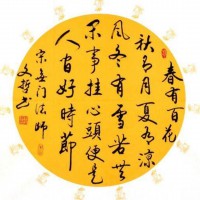 春有百花
秋有月夏有凉
风冬有雪若无
闲事挂心頭便是
人间好時節
宋无门法師
文哲书